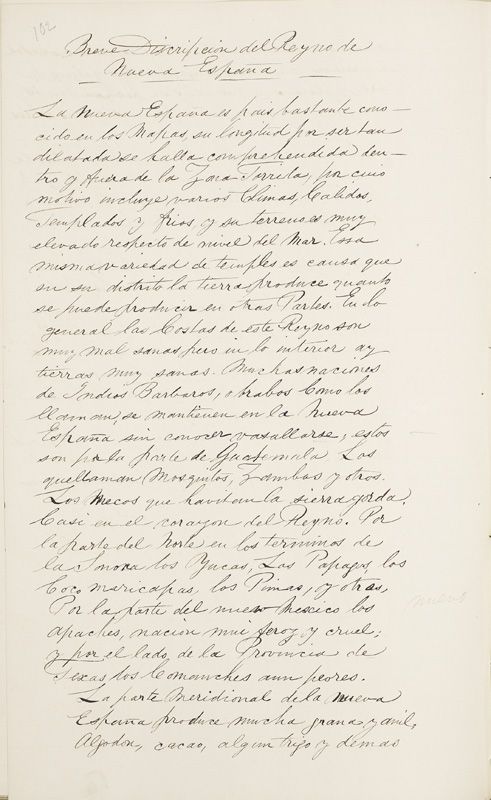 102
Breve Discripcion del Reyno de
Nueva España
La Nueva España es pais bastante cono-
cido en los Mapas, su longitud por ser tan
dilatada se halla comprehendida den-
tro y fuera de la Zona Torrita, por cuio
motivo incluye varios Climas, Calidos,
Templados y frios, y su terreno es muy
elevado respecto de nivel del Mar. Essa
misma variedad de temples es causa que
en su distrito la tierra produce quanto
se puede producir en otras Partes. En lo
general las Costas de este Reyno son
muy mal sanas pero in lo interior ay
tierras muy sanas. Muchas naciones
de Indios Barbaros, o brabos como los
llaman, se mantienen en la Nueva
España sin conocer vasallarse, estos
son por la parte de Guatemala Los
que llaman Mosquitos, Zambos y otros.
Los Mecos que havitan la sierra gorda.
Casi en el corazon del Reyno. Por
la parte del Norte en los terminos de
la Sonora los Yucas, Los Papagos, los
Coco maricapas, los Pimas, y otros,
Por la parte del nuevo Mexico los
apaches, nacion mui feroz y cruel;
y por el lado, de la Provincia de
Texas los Comanches aun peores.
La parte Meridional de la Nueva
España produce mucha grana y anil,
Algodon, cacao, algun trigo y demas
nuevo